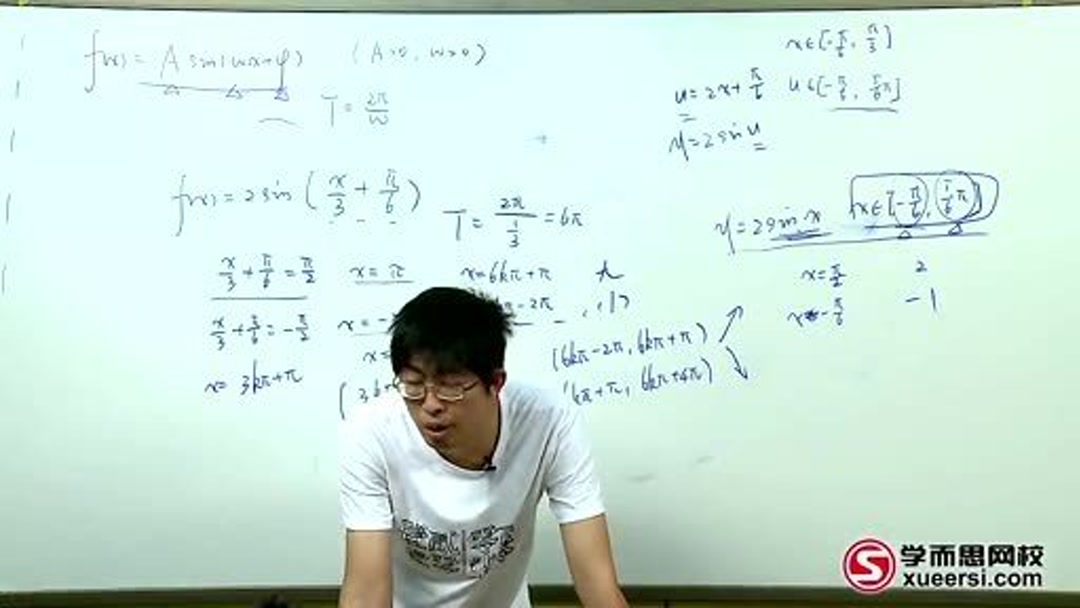 f(x) = A sin(ωx+φ) (A>0, ω>0)
T = 2π/ω
f(x) = 2sin(x/3 + π/6)
T = 2π/(1/3) = 6π
x/3 + π/6 = π/2 x = π x = 6kπ+π 大
x/3 + π/6 = -π/2 x = - kπ-2π 小
x = 3kπ+π x=
(6kπ-2π, 6kπ+π) ↗
kπ+π, 6kπ+4π) ↘
x∈[-π/6, π/3]
u = 2x+π/6 u∈[-π/6, 5/6π]
y = 2sin u
y = 2sin x (x∈[-π/6, 5/6π])
x = π/2 2
x = -π/6 -1
学而思网校
xueersi.com